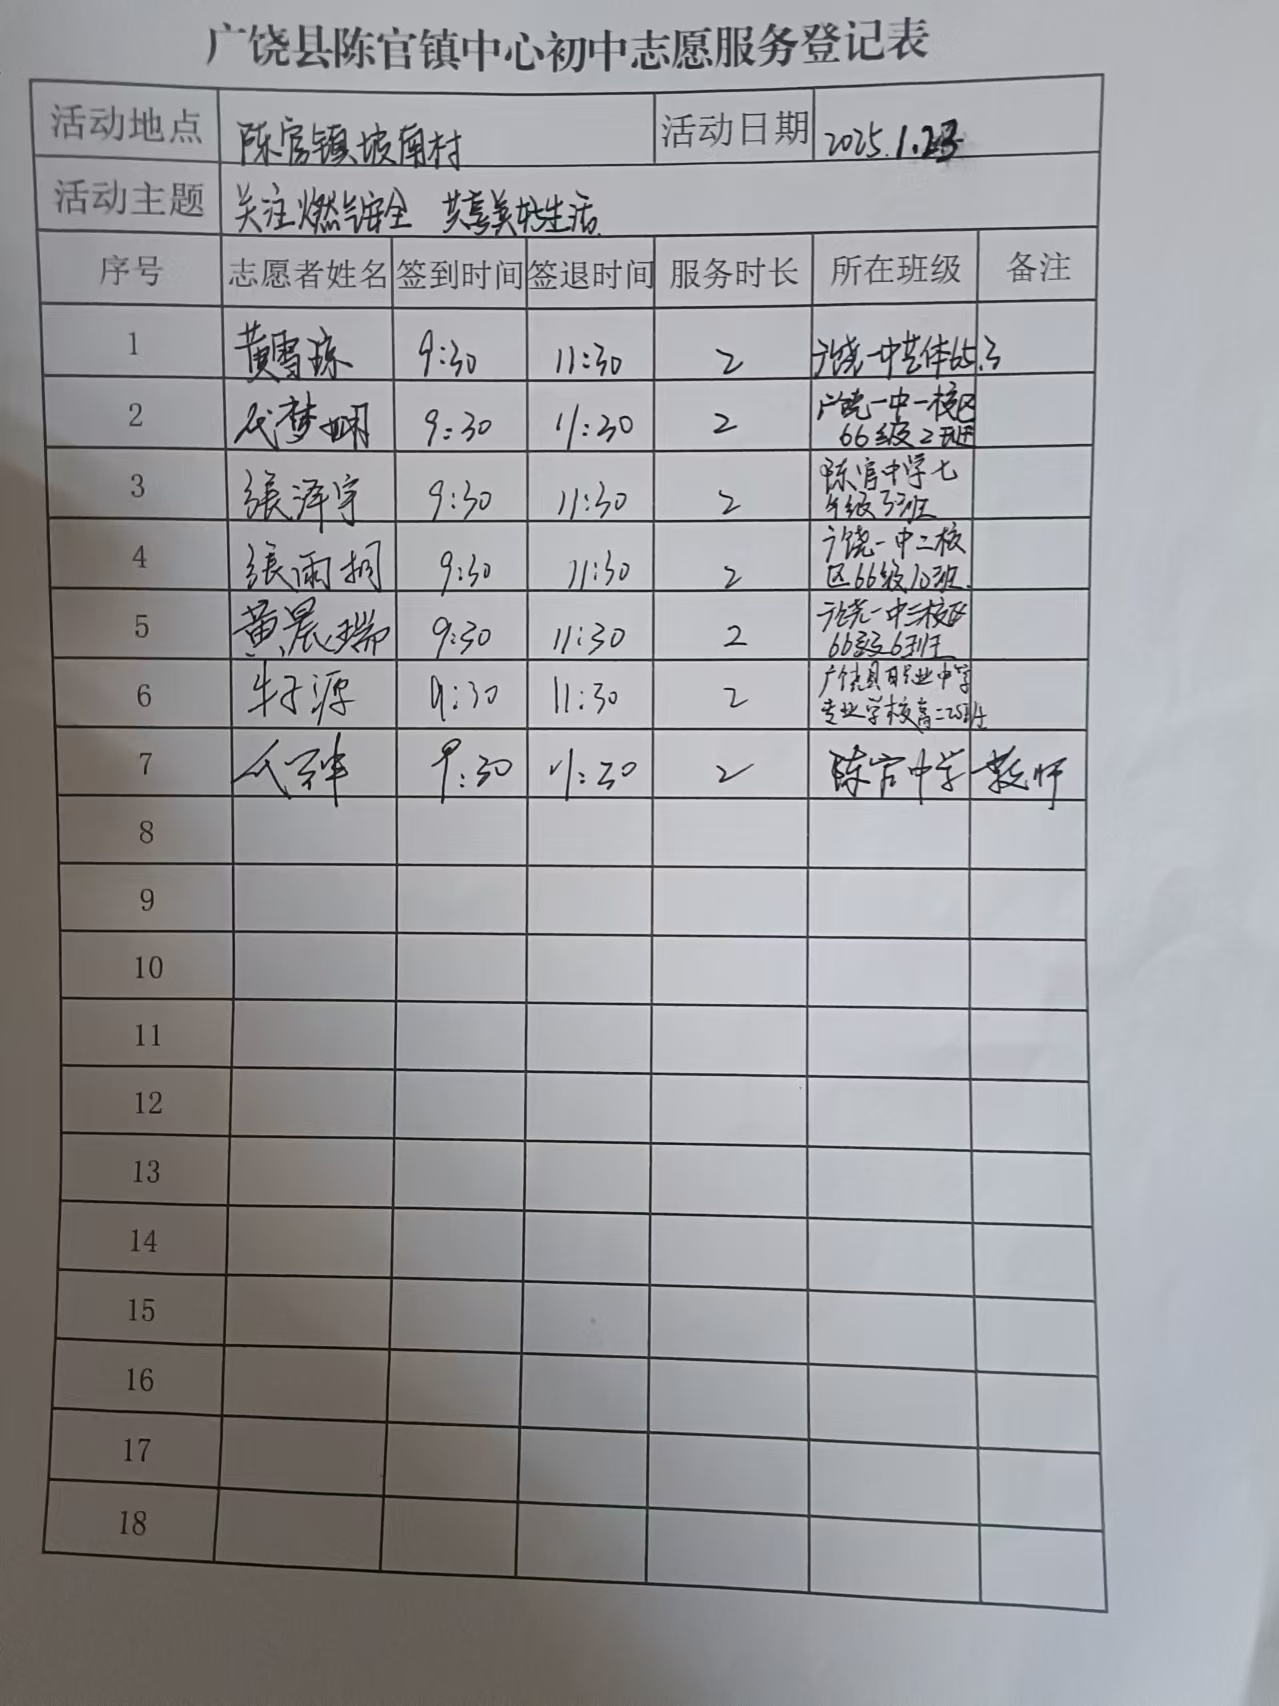 广饶县陈官镇中心初中志愿服务登记表
活动地点 陈官镇坡南村 活动日期 2025.1.23
活动主题 关注燃气安全 共喜美好生活
序号 志愿者姓名 签到时间 签退时间 服务时长 所在班级 备注
1 黄雪琼 9:30 11:30 2 广饶一中艺体65.3
2 代梦 9:30 11:30 2 广饶一中一校区
66级2班
3 张泽宇 9:30 11:30 2 陈官中学七
年级3班
4 张雨桐 9:30 11:30 2 广饶一中二校
区66级10班.
5 黄晨瑞 9:30 11:30 2 广饶一中三校区
66级6班
6 牛子源 9:30 11:30 2 广饶县职业中学
专业学校高二25班
7 9:30 11:30 2 陈官中学 教师
8
9
10
11
12
13
14
15
16
17
18